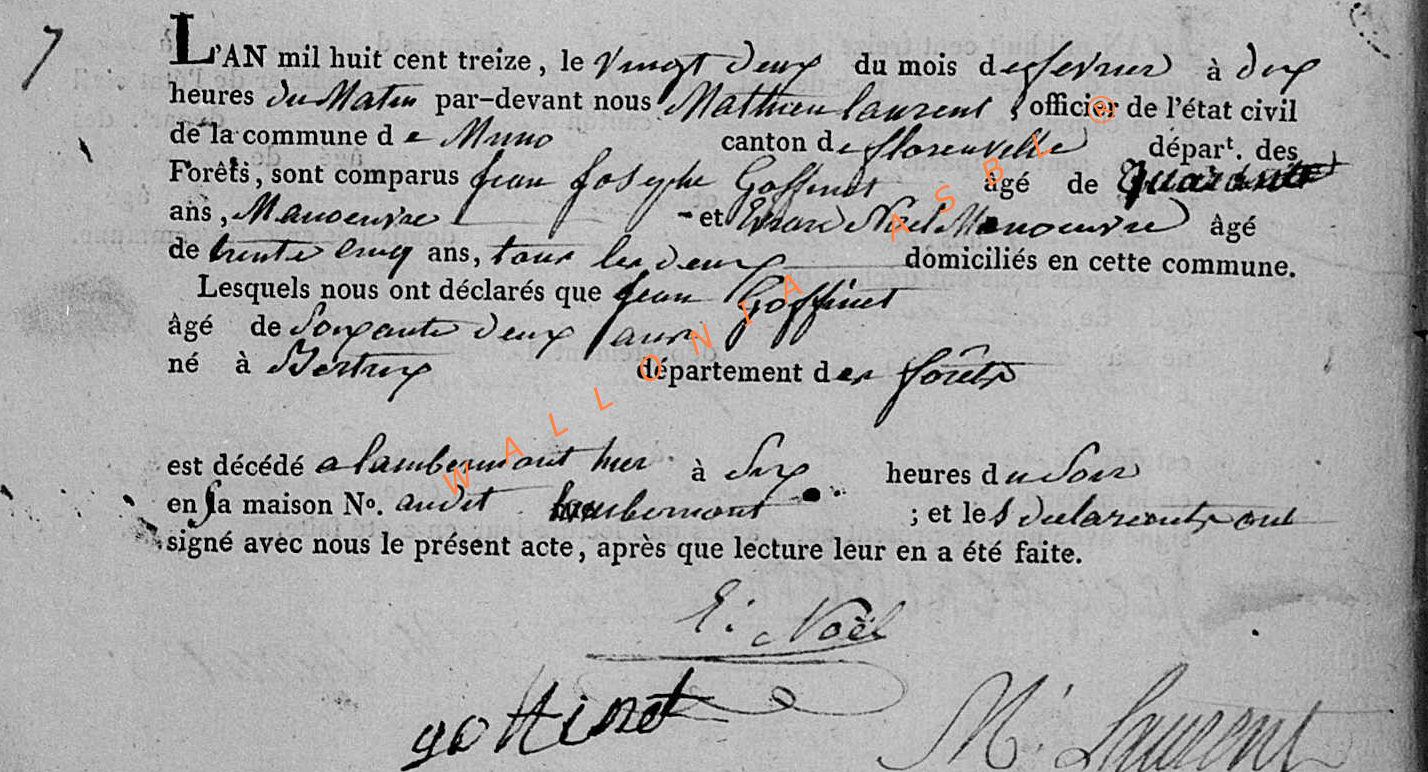 7
L'AN mil huit cent treize, le vingt deux du mois de fevrier à dix
heures du Matin par-devant nous Mathieu laurent, officier de l'état civil
de la commune de Muno canton de florenville départ. des
Forêts, sont comparus jean joseph Goffinet âgé de quarante
ans, Manoeuvre - et Noël Manoeuvre âgé
de trente cinq ans, tous les deux domiciliés en cette commune.
Lesquels nous ont déclarés que jean Goffinet
âgé de soixante deux ans
né à Bertrix département des forêts
est décédé a lambermont hier à six heures du soir
en sa maison No. audit lambermont ; et les declarants ont
signé avec nous le présent acte, après que lecture leur en a été faite.
E: Noël
goffinet
M. Laurent
WALLONIA ASBL ©